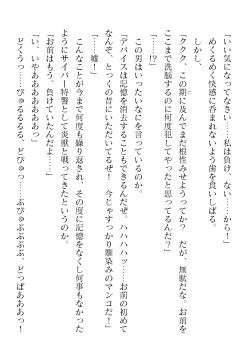 「いい気になってなさい……私は負け、ない……から！」
めくるめく快感に呑まれないよう歯を食いしばる。
しかし、
「ククク、この期に及んだまだ根性みせようってか？　だが、無駄だな。お前を
ここまで洗脳するのに何度犯してやったと思ってるんだ？」
「……!?」
この男はいったいなにを言っているのか。
「デバイスは記憶を消去することもできるんだぜ。ハハハハッ……お前の初めて
なんぞ、とっくの昔にいただいてるぜ！　今じゃすっかり馴染みのマンコだ！」
「……嘘！」
こんなことが今まで何度も繰り返され、その度に記憶をなくし何事もなかった
ようにサイバー特警として奕獣と戦ってきたというのか。
「お前はもう、負けていたんだよ……」
「い、いやあああああああっ」
どくうっ……びゅるるるる、どびゅっ……ぶびゅぶぶぶぶ、どっぱあああっ！